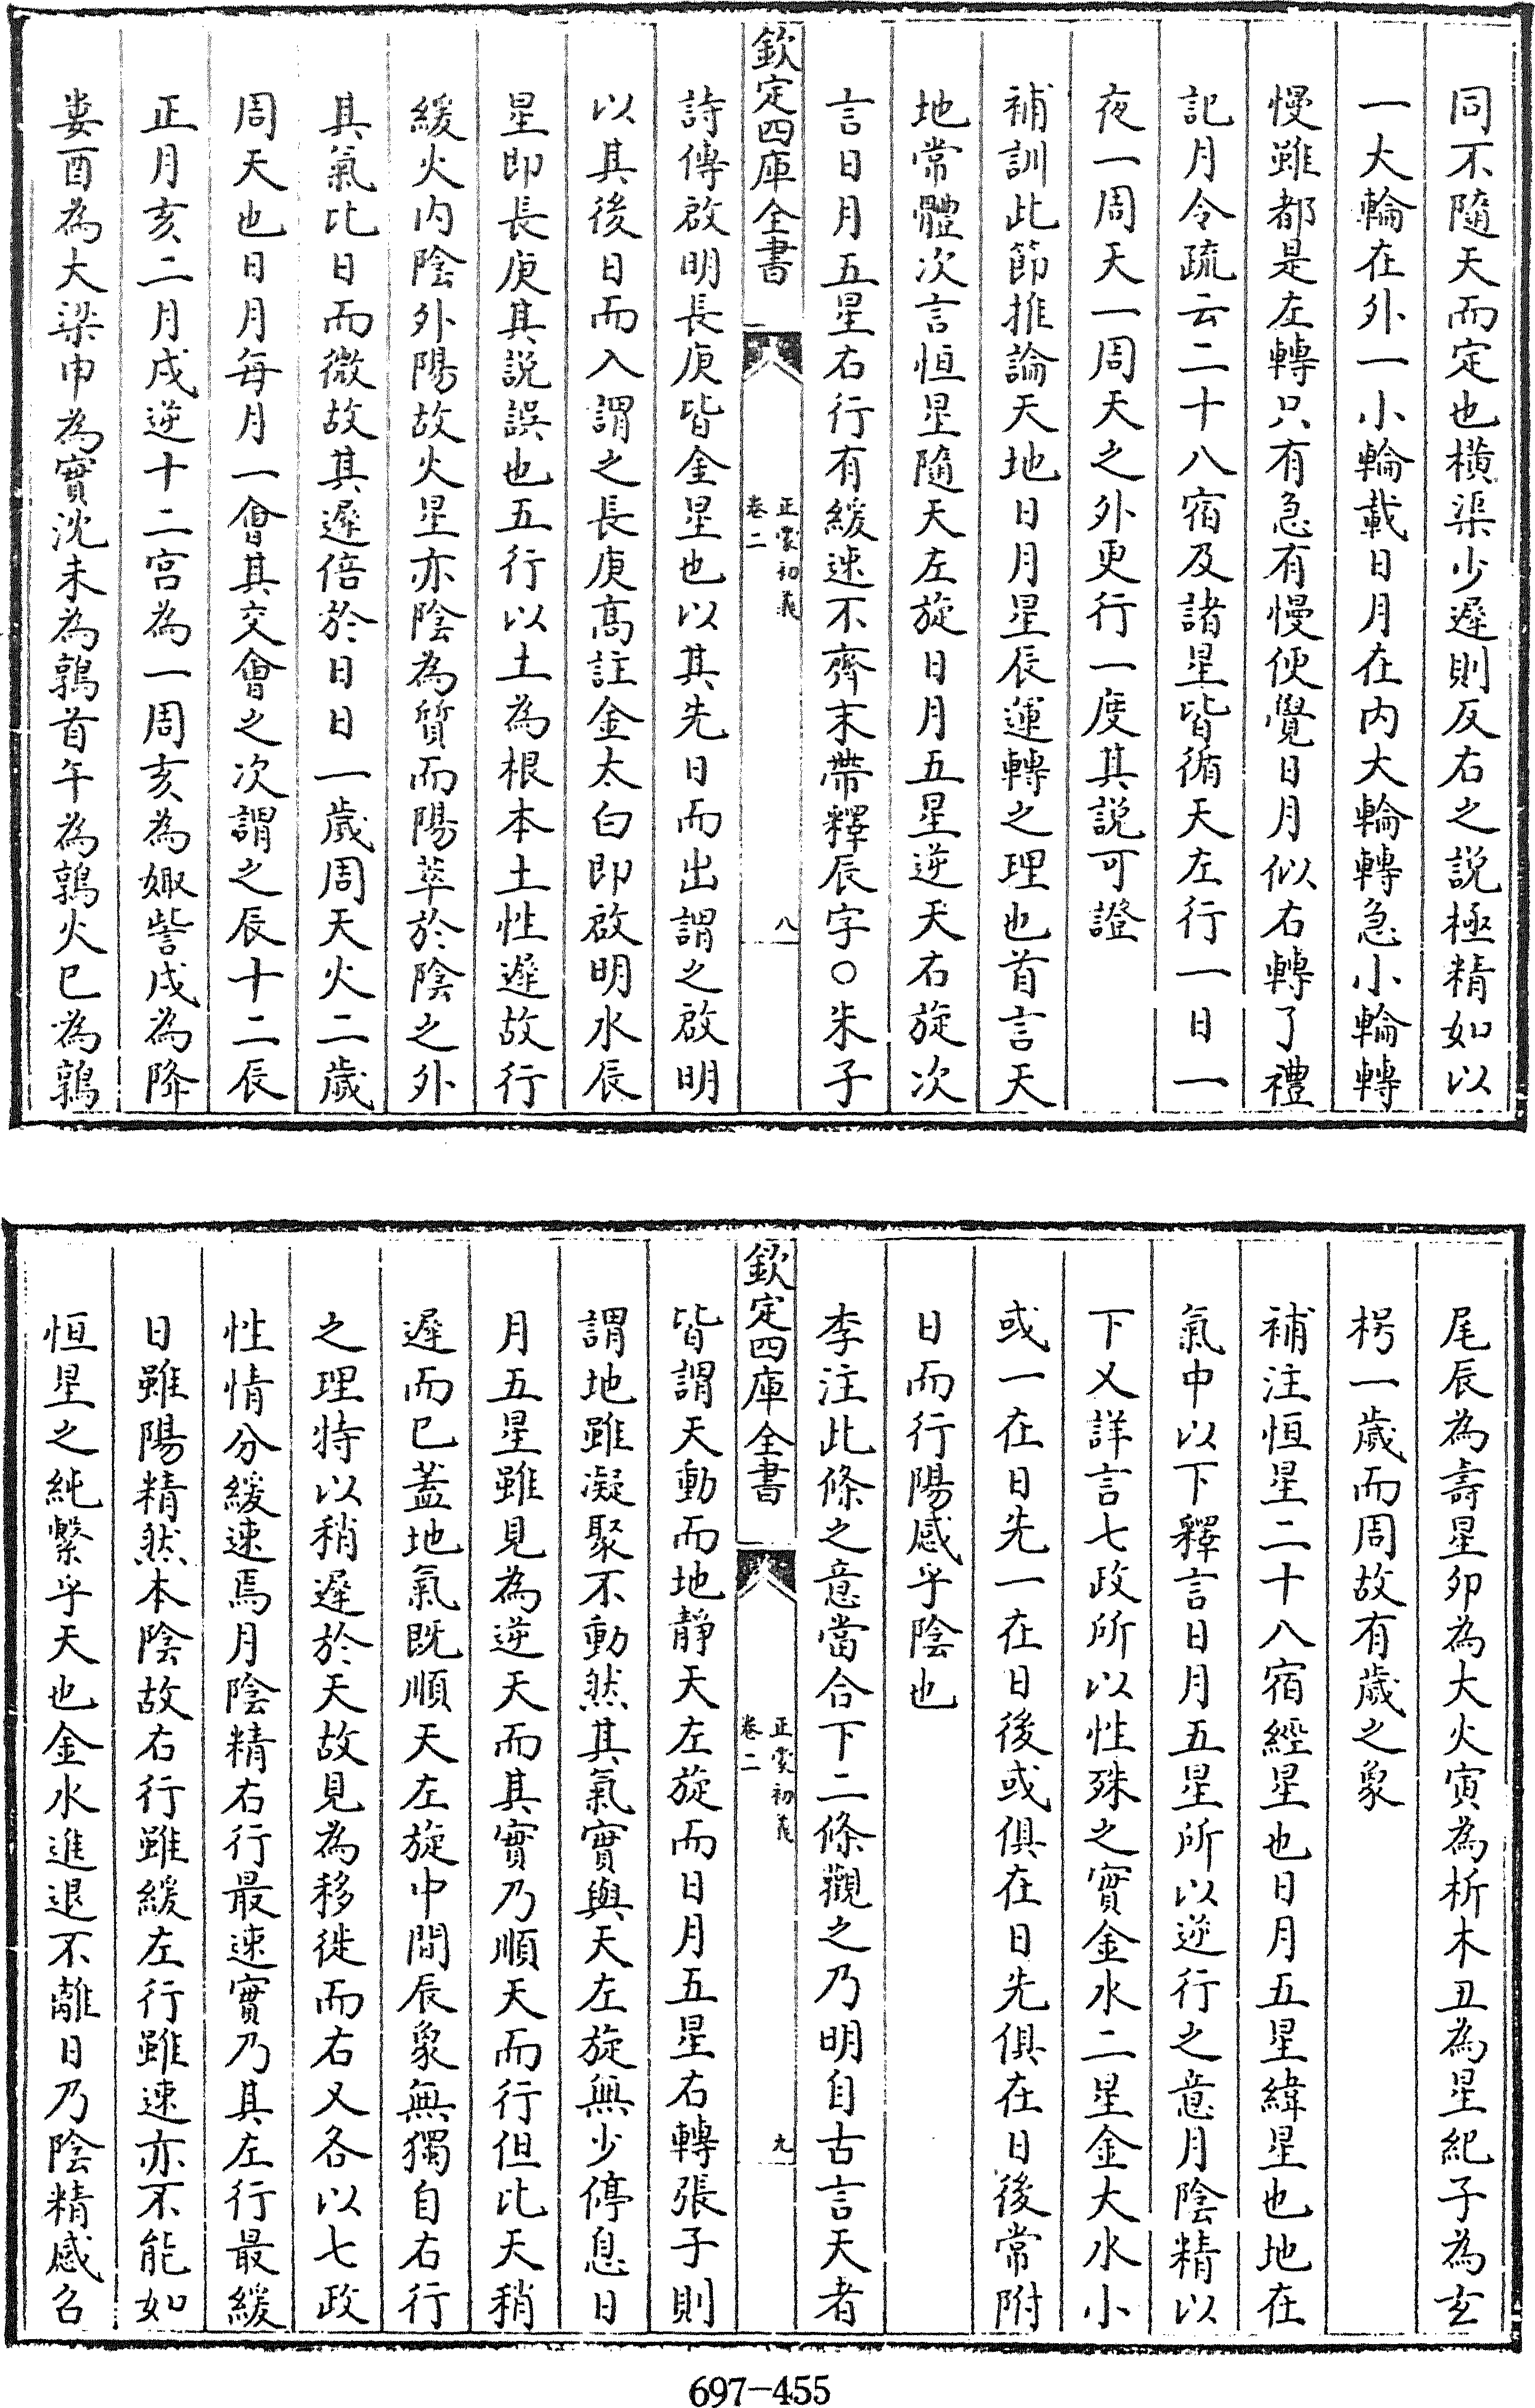 同不隨天而定也橫渠少遲則反右之說極精如以
一大輪在外一小輪載日月在内大輪轉急小輪轉
慢雖都是左轉只有急有慢便覺日月似右轉了禮
記月令疏云二十八宿及諸星皆循天左行一日一
夜一周天一周天之外更行一度其説可證
補訓此節推論天地日月星辰運轉之理也首言天
地常體次言恒星隨天左旋日月五星逆天右旋次
言日月五星右行有緩速不齊末帶釋辰字○朱子
欽定四庫全書
正蒙初義
卷二
八
詩傳啟明長庚皆金星也以其先日而出謂之啟明
以其後日而入謂之長庚髙註金太白即啟明水辰
星即長庚其説誤也五行以土為根本土性遲故行
緩火内陰外陽故火星亦陰為質而陽萃於陰之外
其氣比日而微故其遲倍於日日一歲周天火二歲
周天也日月每月一會其交會之次謂之辰十二辰
正月亥二月戌逆十二宫為一周亥為娵訾戌為降
婁酉為大梁申為實沈未為鶉首午為鶉火巳為鶉
尾辰為壽星卯為大火寅為析木丑為星紀子為玄
枵一歲而周故有歲之象
補注恒星二十八宿經星也日月五星緯星也地在
氣中以下釋言日月五星所以逆行之意月陰精以
下又詳言七政所以性殊之實金水二星金大水小
或一在日先一在日後或俱在日先俱在日後常附
日而行陽感乎陰也
李注此條之意當合下二條觀之乃明自古言天者
欽定四庫全書
正蒙初義
卷二
九
皆謂天動而地靜天左旋而日月五星右轉張子則
謂地雖凝聚不動然其氣實與天左旋無少停息日
月五星雖見為逆天而其實乃順天而行但比天稍
遲而已蓋地氣既順天左旋中間辰象無獨自右行
之理特以稍遲於天故見為移徙而右又各以七政
性情分緩速焉月陰精右行最速實乃其左行最緩
日雖陽精然本陰故右行雖緩左行雖速亦不能如
恒星之純繫乎天也金水進退不離日乃陰精感召
697-455